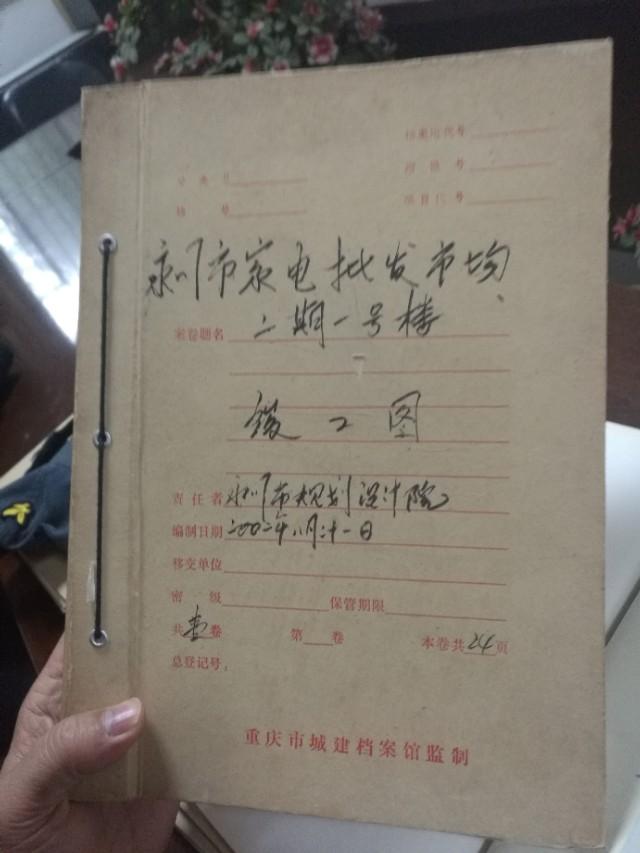 档案馆代号
分类号
缩微号
档号
项目代号
永川市家电批发市场
案卷题名 二期一号楼
竣工图
责任者 永川市规划设计院
编制日期 二00二年八月二十一日
移交单位
密级 保管期限
共壹卷 第 卷 本卷共24页
总登记号:
重庆市城建档案馆监制